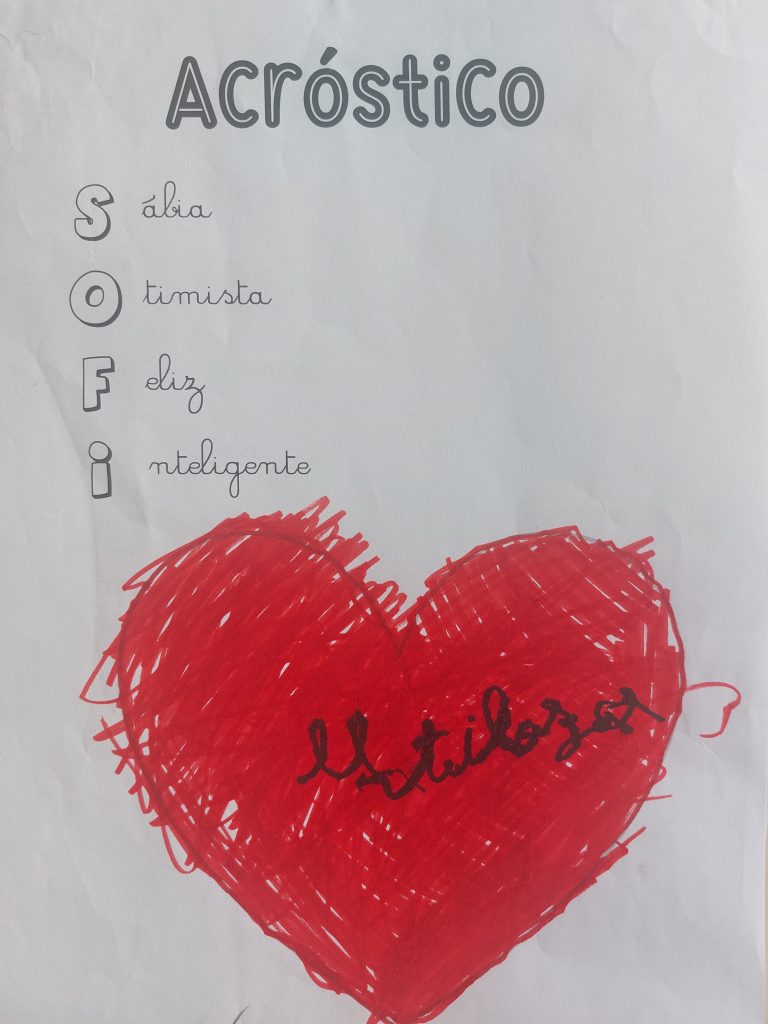 Acróstico
Sábia
Otimista
Feliz
inteligente